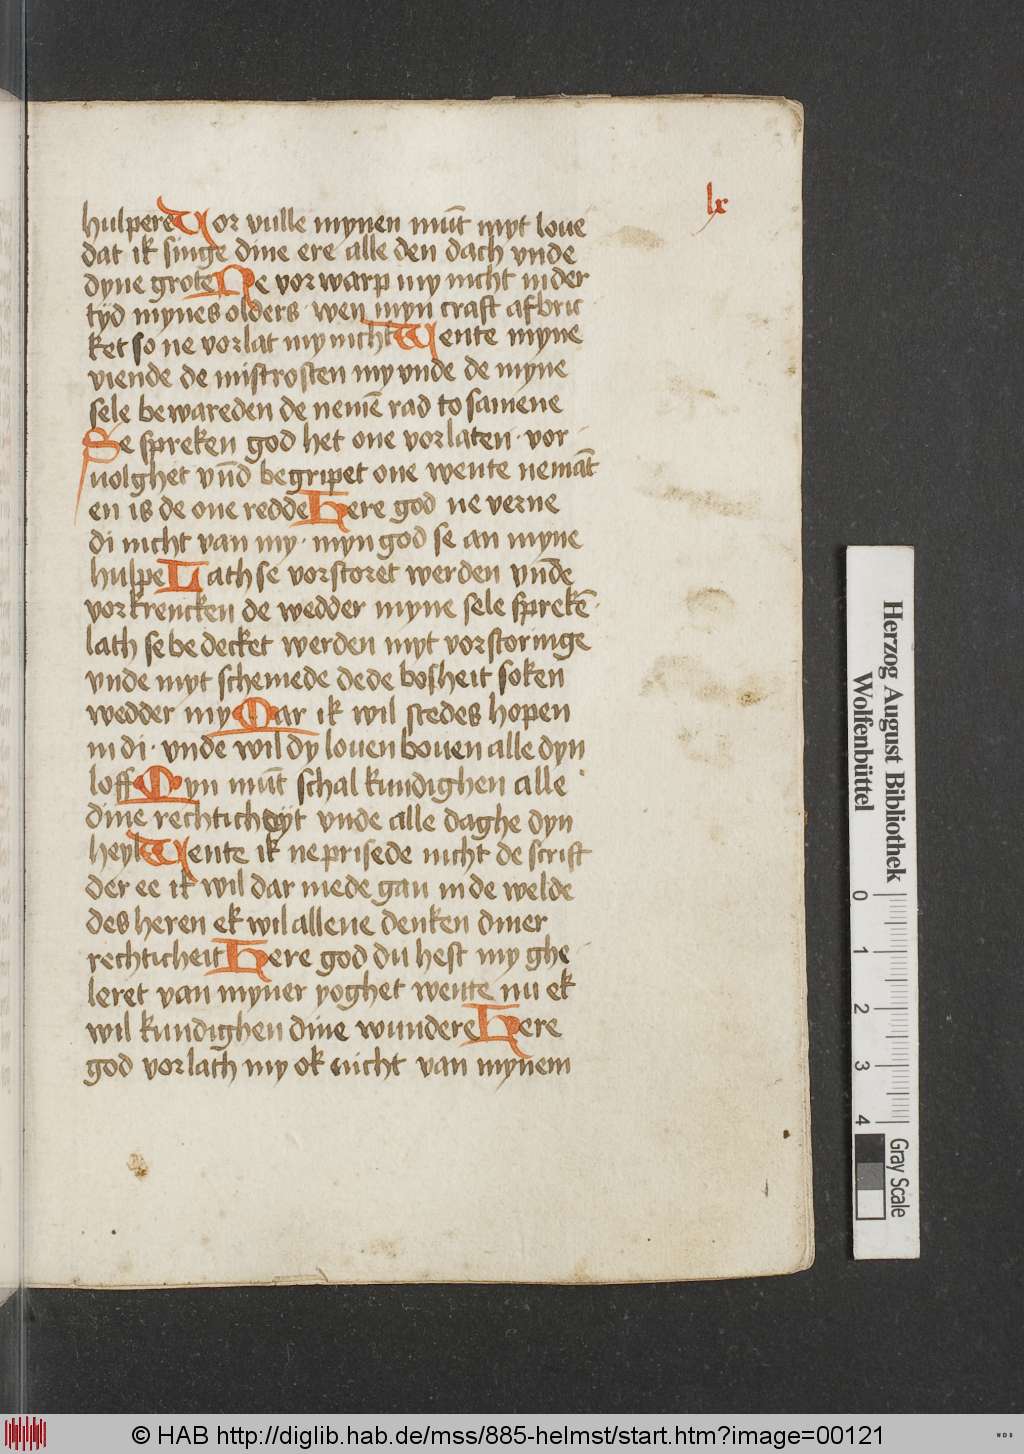 lx
hulpere Vor vulle mynen mūt myt loue
dat ik singe dine ere alle den dach vnde
dyne grote Ne vor warp my nicht in der
tyd mynes olders · wen myn craft af bric
ket so ne vorlat my nicht Wente myne
viende de mistrosten my vnde de myne
sele bewareden de nemē rad to samene
Se spreken god het one vorlaten · vor
uolghet vn̄d begripet one wente nemāt
en is de one redde Here god ne verne
di nicht van my · myn god se an myne
hulpe Lath se vorstoret werden vn̄de
vorkrencken de wedder myne sele sprekē ·
lath se be decket werden myt vorstoringe
vnde myt schemede de de bosheit soken
wedder my Mar ik wil stedes hopen
in di · vnde wil dy louen bouen alle dyn
loff Myn mūt schal kundighen alle
dine rechticheyt vnde alle daghe dyn
heyl Wente ik ne prisede nicht de scrift
der ee ik wil dar mede gan in de welde
des heren ek wil allene denken diner
rechticheit Here god du hest my ghe
leret van myner yoghet wente nu ek
wil kundighen dine wundere Here
god vorlath my ok nicht van mynem
Herzog August Bibliothek
Wolfenbüttel
0 1 2 3 4
Gray Scale
© HAB http://diglib.hab.de/mss/885-helmst/start.htm?image=00121
WDB